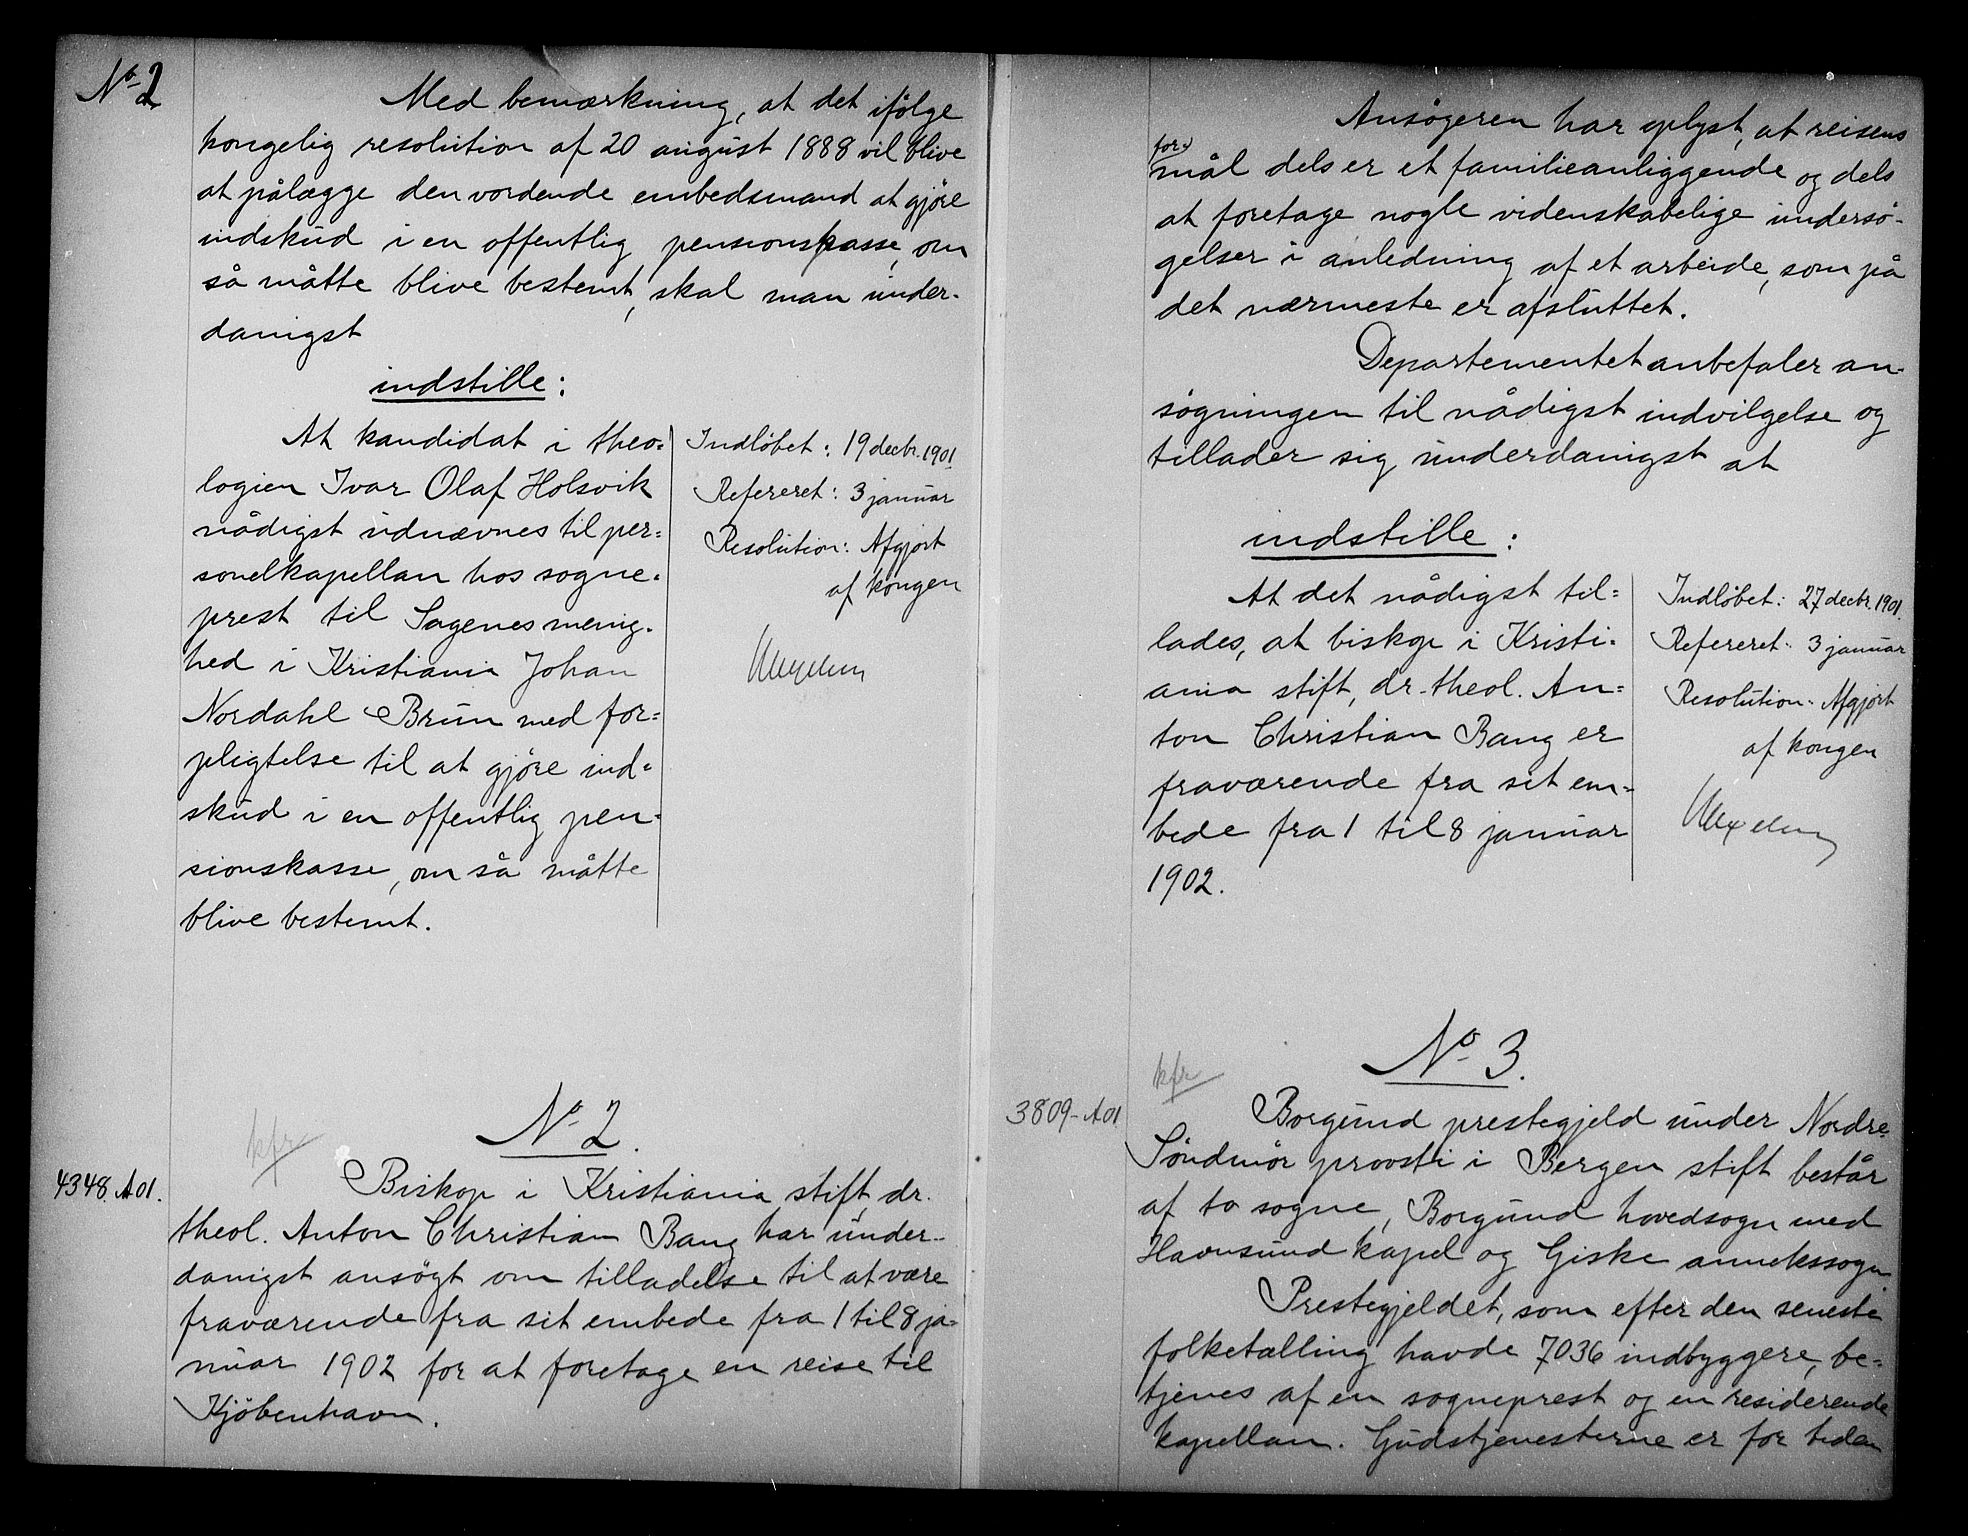 No 2
Med bemærkning, at det ifølge
kongelig resolution af 20 august 1888 vil blive
at pålægge den vordende embedsmand at gjöre
indskud i en offentlig pensionskasse, om
så måtte blive bestemt, skal man under-
danigst
indstille:
At kandidat i theo-
logien Ivar Olaf Holsvik
nådigst udnævnes til per-
sonelkapellan hos sogne-
prest til Sagenes menig-
hed i Kristiania Johan
Nordahl Brun med for-
pligtelse til at gjöre ind-
skud i en offentlig pen-
sionskasse, om så måtte
blive bestemt.
Indløbet: 19 decbr. 1901.
Refereret: 3 januar
Resolution: Afgjort
af kongen
No 2.
kfr
4348. A 01.
Biskop i Kristiania stift, dr.
theol. Anton Christian Bang har under-
danigst ansögt om tilladelse til at være
fraværende fra sit embede fra 1 til 8 ja-
nuar 1902 for at foretage en reise til
Kjöbenhavn.
Ansögeren har oplyst, at reisens
for-
mål dels er et familieanliggende og dels
at foretage nogle videnskabelige undersö-
gelser i anledning af et arbeide, som på
det nærmeste er afsluttet.
Departementet anbefaler an-
søgningen til nådigst indvilgelse og
tillader sig underdanigst at
indstille:
At det nådigst til-
lades, at biskop i Kristi-
ania stift, dr. theol. An-
ton Christian Bang er
fraværende fra sit em-
bede fra 1 til 8 januar
1902.
Indløbet: 27 decbr. 1901.
Refereret: 3 januar
Resolution: Afgjort
af kongen
No 3.
kfr
3809-A01
Borgund prestegjeld under Nordre
Söndmör provsti i Bergen stift består
af to sogne, Borgund hovedsogn med
Havnsund kapel og Giske annekssogn
Prestegjeldet, som efter den seneste
folketælling havde 7036 indbyggere, be-
tjenes af en sogneprest og en residerende
kapellan. Gudstjenesterne er for tiden